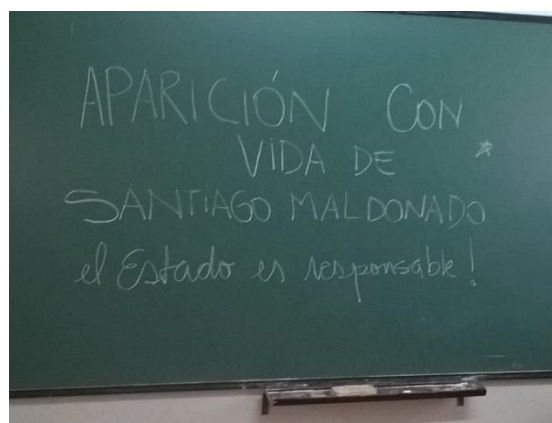 APARICIÓN CON
VIDA DE
SANTIAGO MALDONADO
el Estado es responsable!